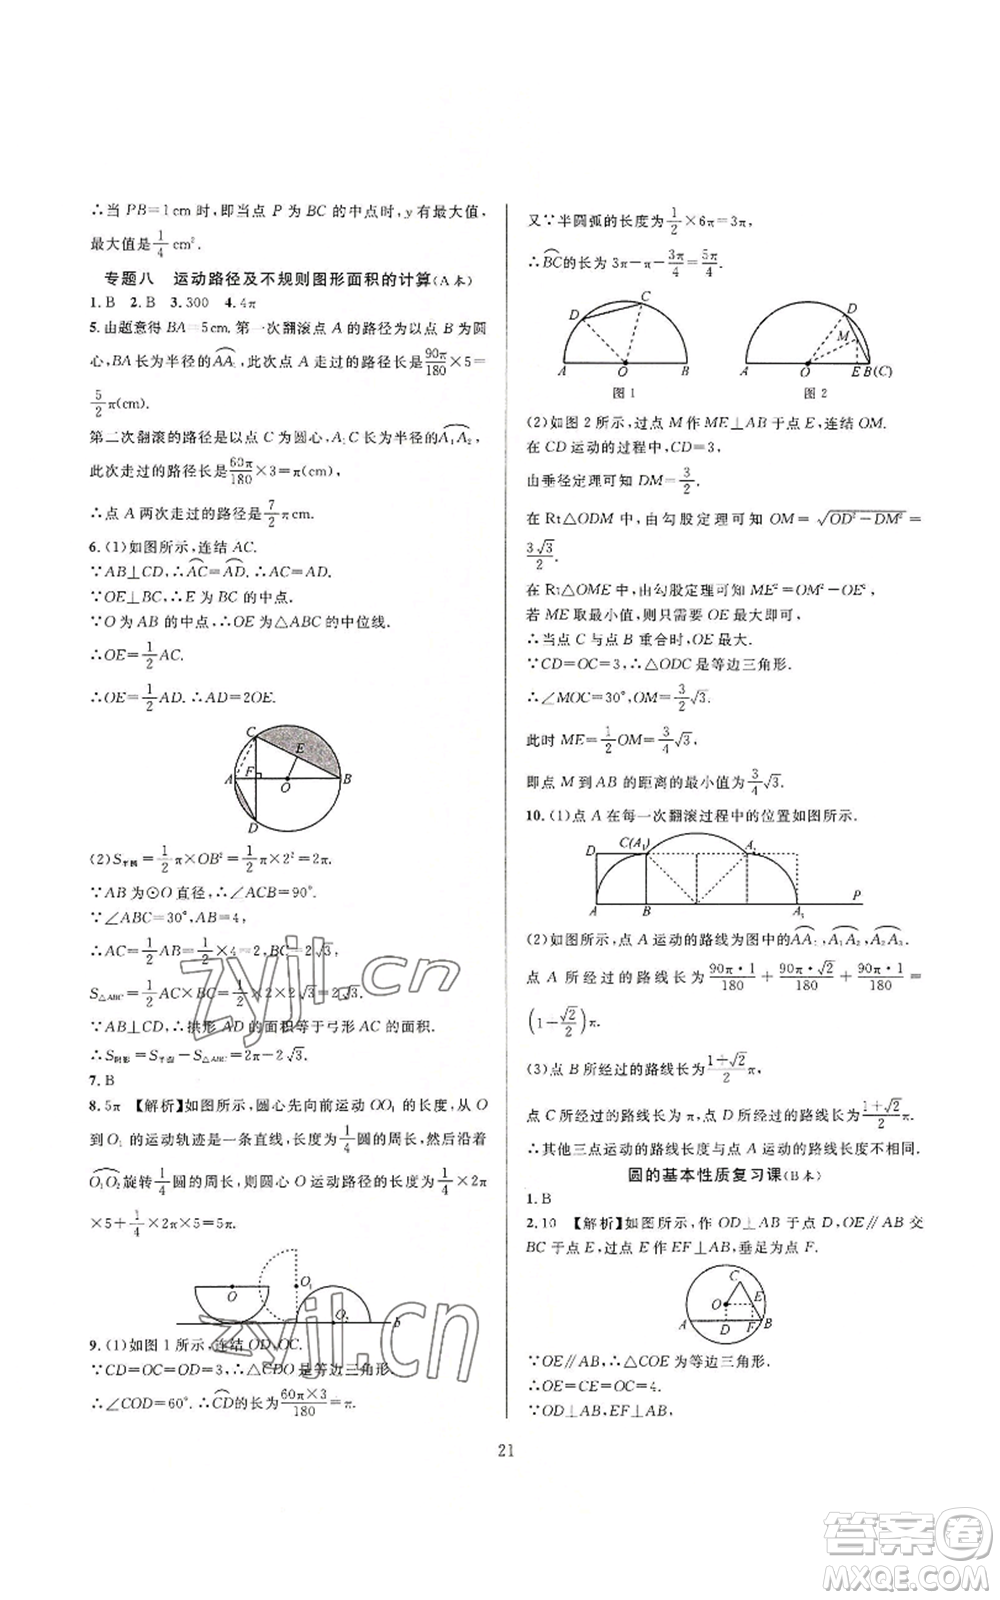 ∴当 PB=1cm 时,即当点 P 为 BC 的中点时,y 有最大值,
最大值是1/4 cm².
专题八 运动路径及不规则图形面积的计算(A本)
1.B 2.B 3.300 4.4π
5.由题意得 BA=5cm.第一次翻滚点 A 的路径为以点 B 为圆
心,BA长为半径的AA₁,此次点 A 走过的路径长是90π/180×5=
5/2π(cm).
第二次翻滚的路径是以点 C 为圆心,A₁C 长为半径的A₁A₂,
此次走过的路径长是60π/180×3=π(cm),
∴点 A 两次走过的路径是7/2πcm.
6.(1)如图所示,连结 AC.
∵AB⊥CD,∴AC=AD.∴AC=AD.
∵OE⊥BC,∴E 为 BC 的中点.
∵O为 AB 的中点,∴OE为△ABC 的中位线.
∴OE=1/2AC.
∴OE=1/2AD.∴AD=2OE.
C
E
A
F
O
B
D
(2)S半圆=1/2π×OB²=1/2π×2²=2π.
∵AB 为⊙O 直径,∴∠ACB=90°.
∵∠ABC=30°,AB=4,
∴AC=1/2AB=1/2×4=2,BC=2√3.
S△ABC=1/2AC×BC=1/2×2×2√3=2√3.
∵AB⊥CD,∴拱形 AD 的面积等于弓形 AC 的面积.
∴S阴影=S半圆−S△ABC=2π−2√3.
7.B
8.5π 【解析】如图所示,圆心先向前运动 OO₁ 的长度,从 O
到 O₁ 的运动轨迹是一条直线,长度为1/4圆的周长,然后沿着
O₁O₂旋转1/4圆的周长,则圆心 O 运动路径的长度为1/4×2π
×5+1/4×2π×5=5π.
O
O₁
O₂
b
9.(1)如图 1 所示,连结 OD,OC.
∵CD=OC=OD=3,∴△CDO 是等边三角形,
∴∠COD=60°.∴CD的长为60π×3/180=π.
又∵半圆弧的长度为1/2×6π=3π,
∴BC的长为 3π−π−3π/4=5π/4.
D
C
A
O
B
图 1
D
M
A
O
E B(C)
图 2
(2)如图 2 所示,过点 M 作 ME⊥AB 于点 E,连结 OM.
在 CD 运动的过程中,CD=3,
由垂径定理可知 DM=3/2.
在 Rt△ODM 中,由勾股定理可知 OM=√(OD²−DM²)=
3√3/2.
在 Rt△OME 中,由勾股定理可知 ME²=OM²−OE²,
若 ME 取最小值,则只需要 OE 最大即可.
∴当点 C 与点 B 重合时,OE 最大.
∵CD=OC=3,∴△ODC 是等边三角形.
∴∠MOC=30°,OM=3/2√3.
此时 ME=1/2OM=3/4√3.
即点 M 到 AB 的距离的最小值是3/4√3.
10.(1)点 A 在每一次翻滚过程中的位置如图所示.
D
C(A₁)
A₂
A
B
A₃
P
(2)如图所示,点 A 运动的路线为图中的AA₁,A₁A₂,A₂A₃.
点 A 所经过的路线长为90π·1/180+90π·√2/180+90π·1/180=
(1+√2/2)π.
(3)点 B 所经过的路线长为1+√2/2π,
点 C 所经过的路线长为 π,点 D 所经过的路线长为1+√2/2π.
∴其他三点运动的路线长度与点 A 运动的路线长度不相同.
圆的基本性质复习课(B本)
1.B
2.10 【解析】如图所示,作 OD⊥AB 于点 D,OE∥AB 交
BC于点 E,过点 E 作 EF⊥AB,垂足为点 F.
C
O
E
A
D
F
B
∵OE∥AB,∴△COE 为等边三角形.
∴OE=CE=OC=4.
∵OD⊥AB,EF⊥AB,
21
zyjl.cn
zyjl.cn
答案卷
MXQE.COM